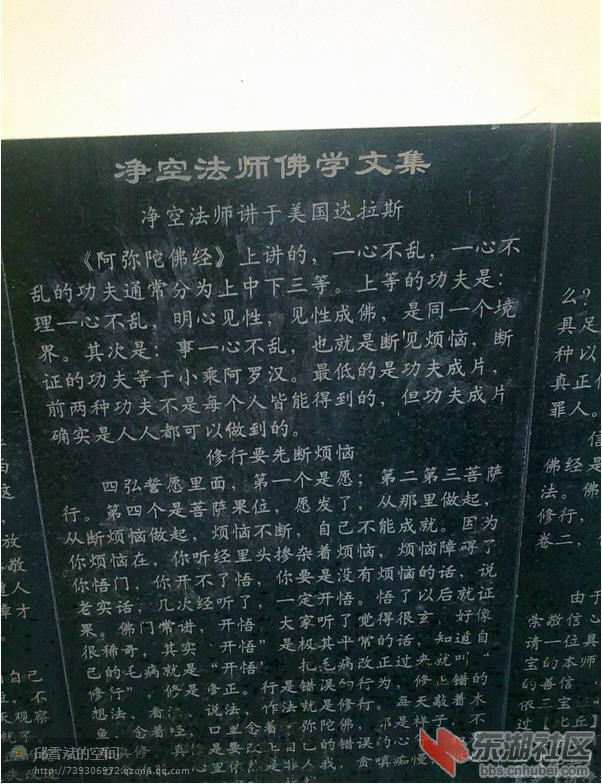 净空法师佛学文集
净空法师讲于美国达拉斯
《阿弥陀佛经》上讲的，一心不乱，一心不
乱的功夫通常分为上中下三等。上等的功夫是：
理一心不乱，明心见性，见性成佛，是同一个境
界。其次是：事一心不乱，也就是断见烦恼，断
证的功夫等于小乘阿罗汉。最低的是功夫成片，
前两种功夫不是每个人皆能得到的，但功夫成片
确实是人人都可以做到的。
修行要先断烦恼
四弘誓愿里面，第一个是愿；第二第三菩萨
行。第四个是菩萨果位，愿发了，从那里做起，
从断烦恼做起，烦恼不断，自己不能成就。因为
你烦恼在，你听经里头掺杂着烦恼，烦恼障碍了
你悟门，你开不了悟，你要是没有烦恼的话，说
老实话，几次经听了，一定开悟。悟了以后就证
果。佛门常讲，开悟，大家听了觉得很玄，好像
很稀奇，其实“开悟”是极其平常的话，知道自
己的毛病就是“开悟”，把毛病改正过来就叫“
修行”，修是修正。行是错误的行为，修正错的
想法、看法、说法、作法就是修行。每天敲着木
鱼，念着经，口里念着阿弥陀佛，那是样子，不
么？
具足
种以
真正
罪人。
信
佛经是
法。佛
修行，
卷二，
由于
崇敬信心
请一位具
宝的本师
的善信
依三宝
过【比丘】
与
这
放
敬
道人
障才
自己
，不
天观察
邱雪斌的空间
http://739306972.qzone.qq.com
东湖社区
bbs.cnhubei.com